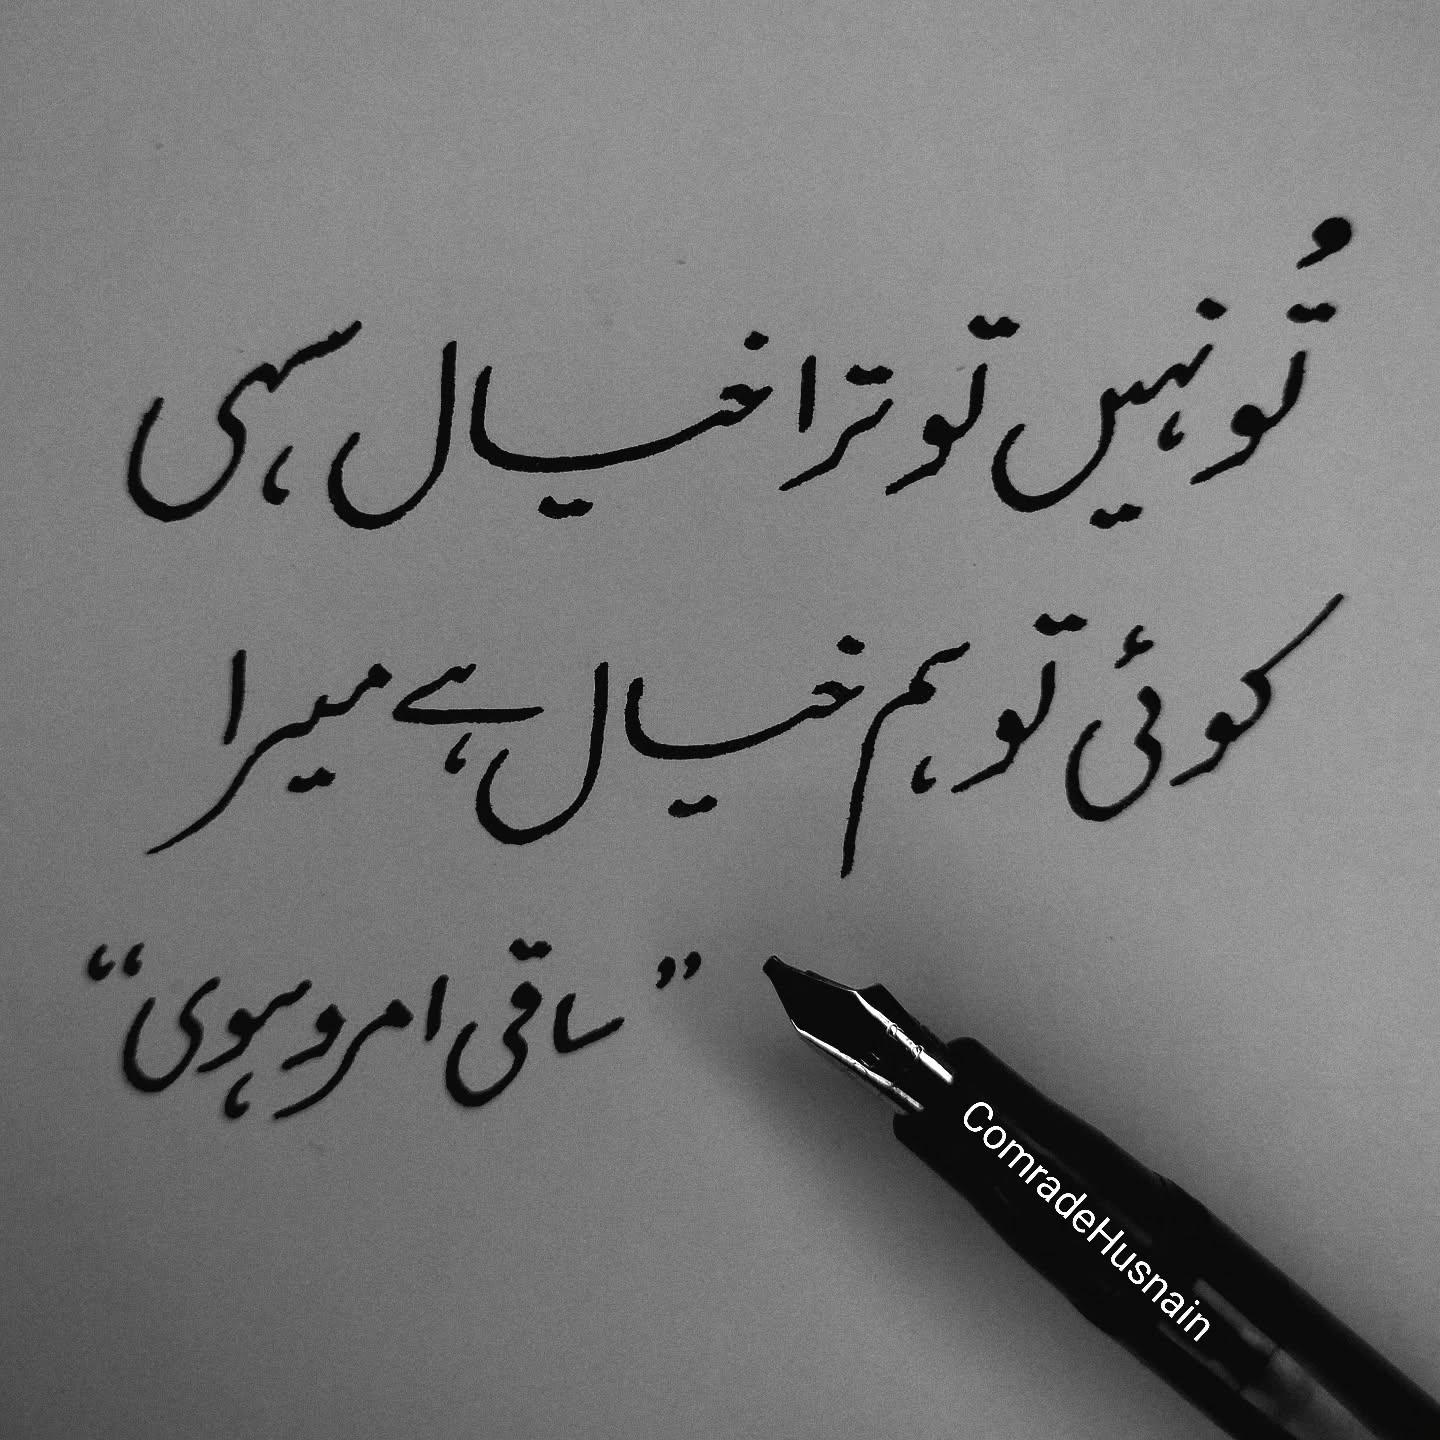 تُو نہیں تو ترا خیال سہی
کوئی تو ہم خیال ہے میرا
”ساقی امروہوی“
ComradeHusnain